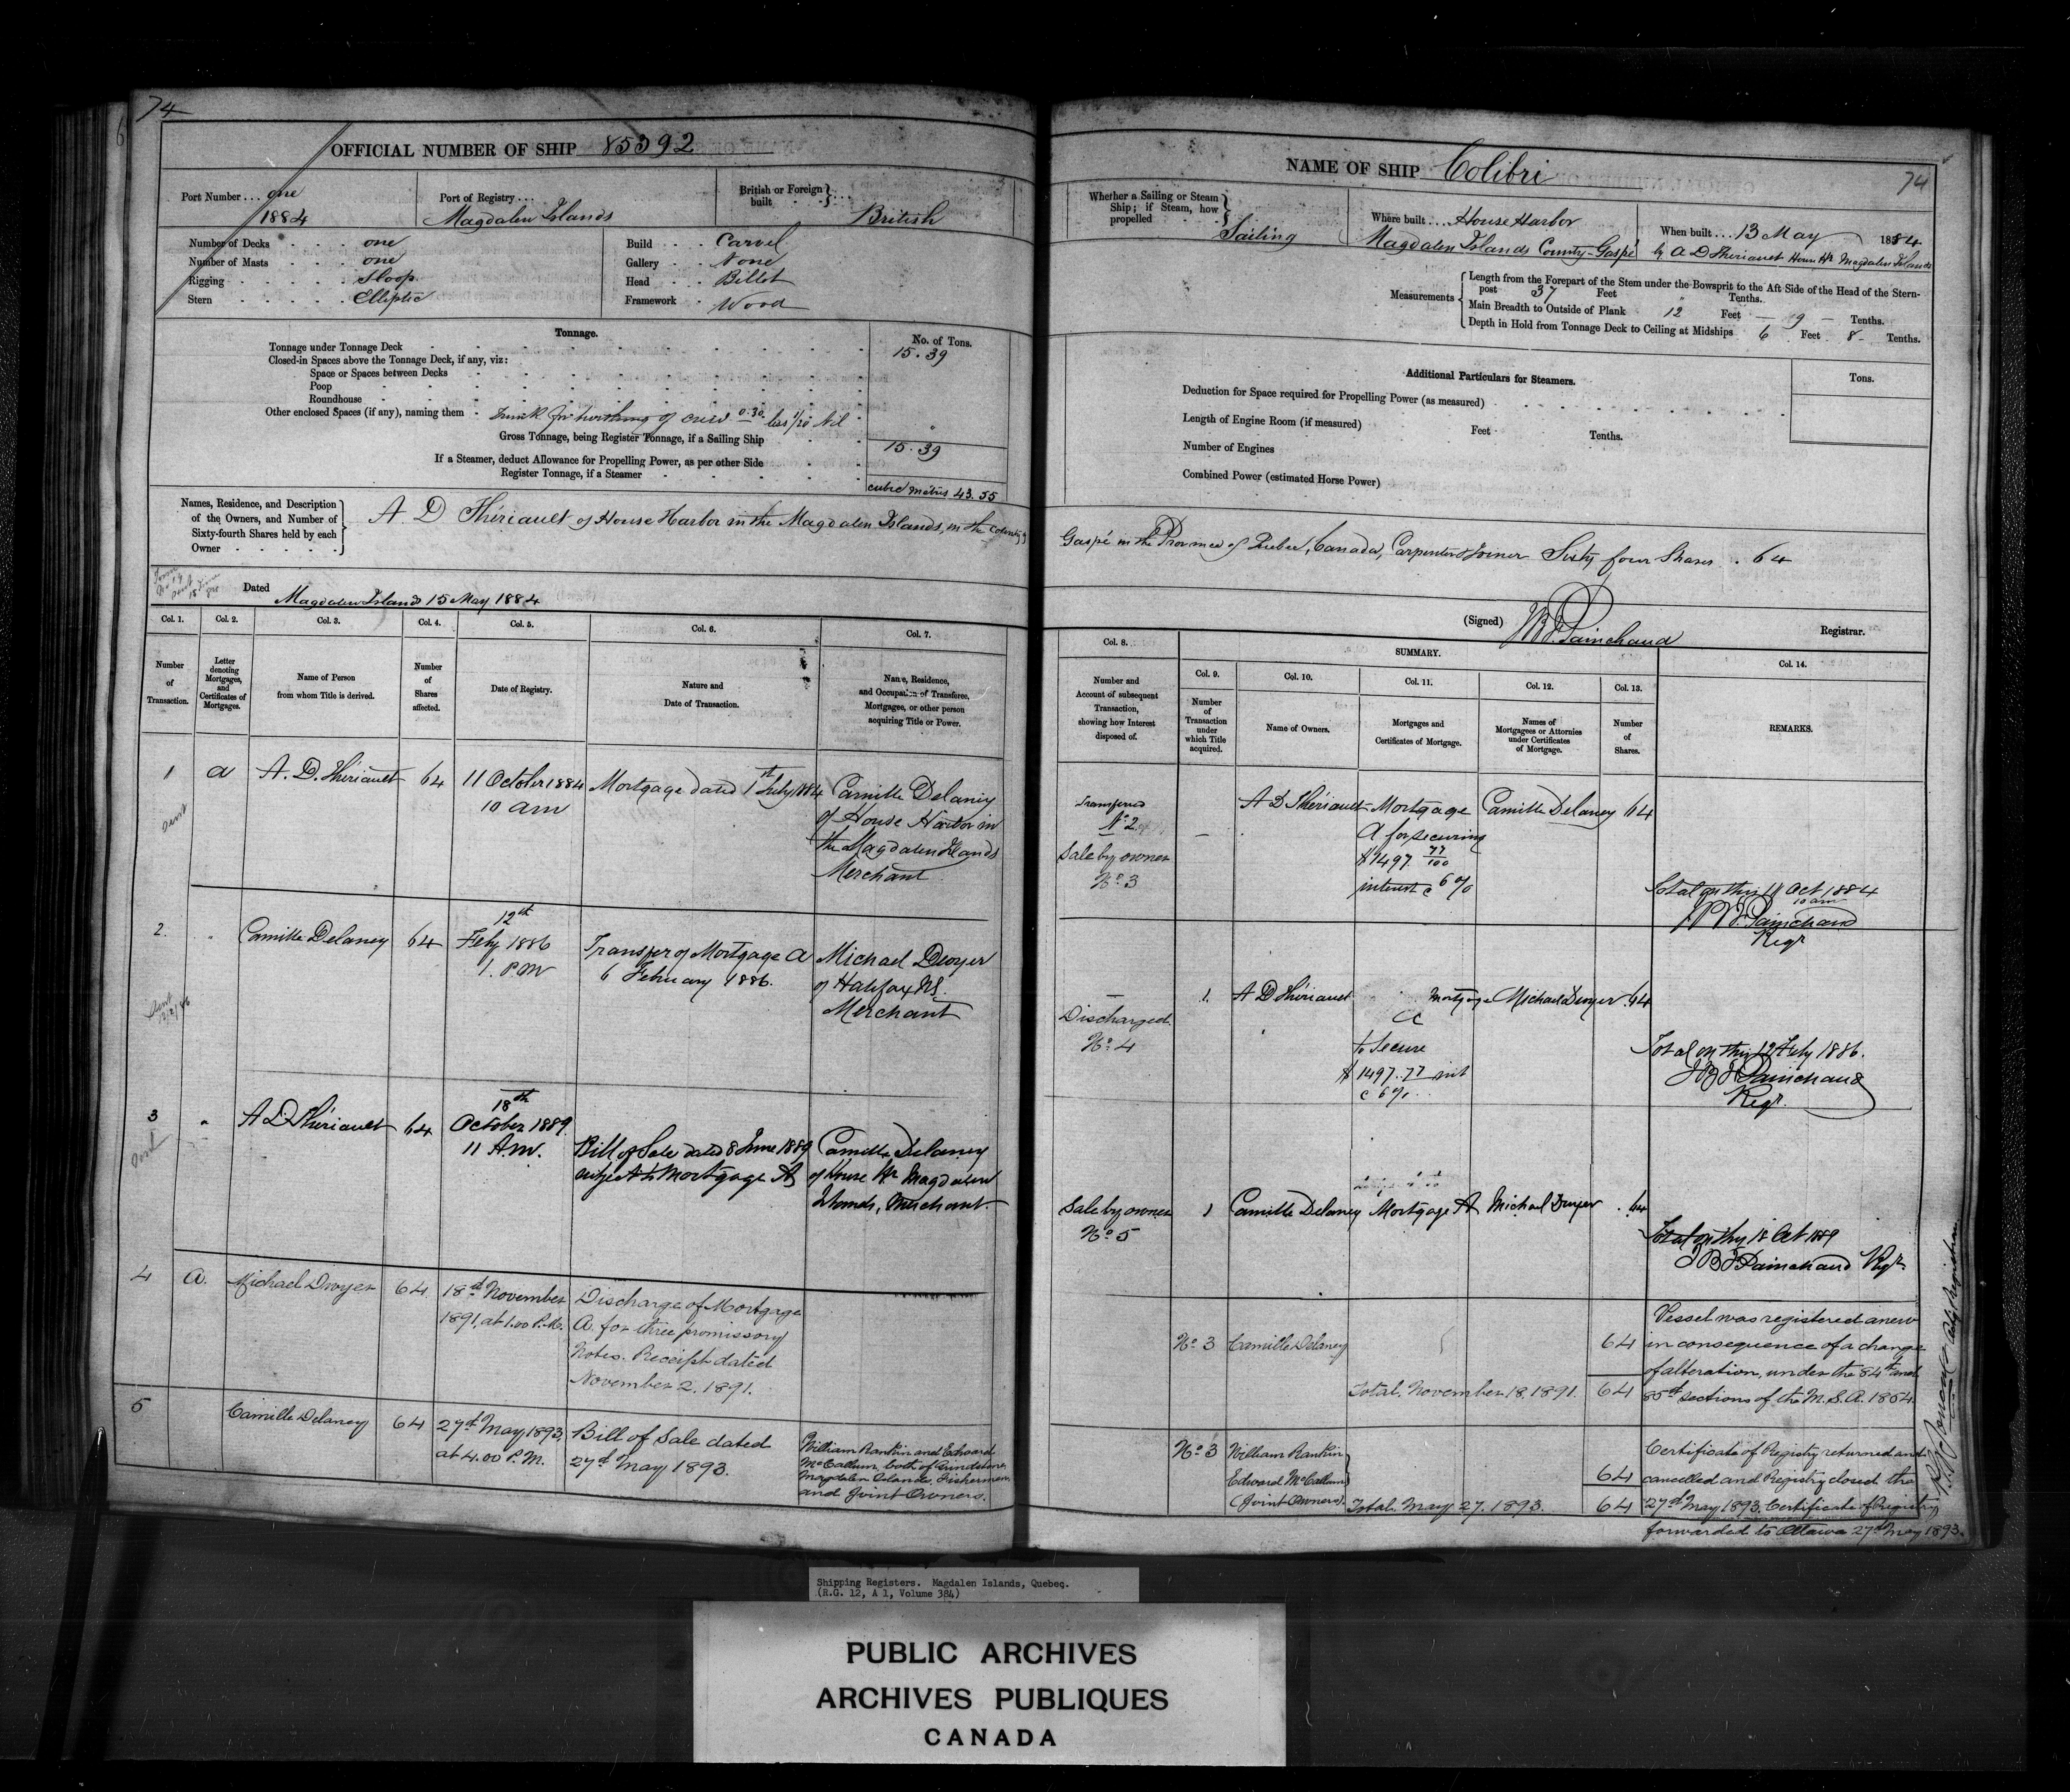 74
OFFICIAL NUMBER OF SHIP 85392
Port Number ... one
1884
Port of Registry ...
Magdalen Islands
British or Foreign
built
British
Number of Decks one
Number of Masts one
Rigging Sloop
Stern Elliptic
Build Carvel
Gallery None
Head Billet
Framework Wood
Tonnage.
No. of Tons.
Tonnage under Tonnage Deck 15.39
Closed-in Spaces above the Tonnage Deck, if any, viz:
Space or Spaces between Decks
Poop
Roundhouse
Other enclosed Spaces (if any), naming them Trunk for berthing of crew 0.30 less 1/20 Nil
Gross Tonnage, being Register Tonnage, if a Sailing Ship 15.39
If a Steamer, deduct Allowance for Propelling Power, as per other Side
Register Tonnage, if a Steamer
cubic metres 43.55
Names, Residence, and Description
of the Owners, and Number of
Sixty-fourth Shares held by each
Owner
A. D Thériault of House Harbor in the Magdalen Islands, in the County of
Dated Magdalen Islands 15 May 1884
Col. 1. Col. 2. Col. 3. Col. 4. Col. 5. Col. 6. Col. 7.
Number
of
Transaction.
Letter
denoting
Mortgages,
and
Certificates of
Mortgages.
Name of Person
from whom Title is derived.
Number
of
Shares
affected.
Date of Registry.
Nature and
Date of Transaction.
Name, Residence,
and Occupation of Transferee,
Mortgagee, or other person
acquiring Title or Power.
1 a A. D. Thériault 64
11 October 1884
10 am
Mortgage dated 1st July 1884
Camille Delaney
of House Harbor in
the Magdalen Islands
Merchant
2. " Camille Delaney 64
12th
Feby 1886
1. PM
Transfer of Mortgage A
6 February 1886.
Michael Dwyer
of Halifax NS.
Merchant
3 " A D Thériault 64
18th
October 1889.
11 A.M.
Bill of Sale dated 8 June 1889
subject to Mortgage A
Camille Delaney
of House Hr Magdalen
Islands, Merchant.
4 a. Michael Dwyer 64
18th November
1891, at 1.00 P.M.
Discharge of Mortgage
A. for three promissory
Notes. Receipt dated
November 2. 1891.
5 Camille Delaney 64
27th May 1893,
at 4.00 P.M.
Bill of Sale dated
27th May 1893.
William Rankin and Edward
McCallum, both of Grindstone,
Magdalen Islands, Fishermen,
and Joint Owners.
NAME OF SHIP Colibri
74
Whether a Sailing or Steam
Ship; if Steam, how
propelled
Sailing
Where built ... House Harbor
Magdalen Islands County - Gaspé
When built ... 13 May 1884
by A D Thériault House Hr Magdalen Islands
Measurements
Length from the Forepart of the Stem under the Bowsprit to the Aft Side of the Head of the Stern-
post 37 Feet " Tenths.
Main Breadth to Outside of Plank 12 Feet — 9 — Tenths.
Depth in Hold from Tonnage Deck to Ceiling at Midships 6 Feet 8 - Tenths.
Additional Particulars for Steamers.
Tons.
Deduction for Space required for Propelling Power (as measured)
Length of Engine Room (if measured) Feet Tenths.
Number of Engines
Combined Power (estimated Horse Power)
Gaspé in the Province of Quebec, Canada, Carpenter & Joiner Sixty four Shares . 64
(Signed) JBF Painchaud Registrar.
Col. 8.
SUMMARY.
Col. 9. Col. 10. Col. 11. Col. 12. Col. 13. Col. 14.
Number and
Account of subsequent
Transaction,
showing how Interest
disposed of.
Number
of
Transaction
under
which Title
acquired.
Name of Owners.
Mortgages and
Certificates of Mortgage.
Names of
Mortgagees or Attornies
under Certificates
of Mortgage.
Number
of
Shares.
REMARKS.
Transferred
No 2
Sale by owner
No 3
A D Thériault
Mortgage
A for securing
$1497 77/100
interest c 6%
Camille Delaney 64
Total on this 11 Oct 1884
10 am
JBF Painchaud
Regr
Discharged
No 4
1. A D Thériault
Mortgage
A
to Secure
$1497.77 int
c 6%
Michael Dwyer 64
Total on this 12 Feby 1886.
JBF Painchaud
Regr.
Sale by owner
No 5
1 Camille Delaney Mortgage A Michael Dwyer . 64
Total on this 18 Oct 1889
JBF Painchaud Regr
No 3 Camille Delaney 64
Total, November 18, 1891. 64
Vessel was registered anew
in consequence of a change
of alteration, under the 84th and
85th Sections of the M.S.A. 1854.
No 3 William Rankin
Edward McCallum
(Joint Owners). 64
Total May 27. 1893. 64
Certificate of Registry returned and
cancelled and Registry closed the
27th May 1893. Certificate of Registry
forwarded to Ottawa 27th May 1893.
Shipping Registers. Magdalen Islands, Quebec.
(R.G. 12, A 1, Volume 384)
PUBLIC ARCHIVES
ARCHIVES PUBLIQUES
CANADA